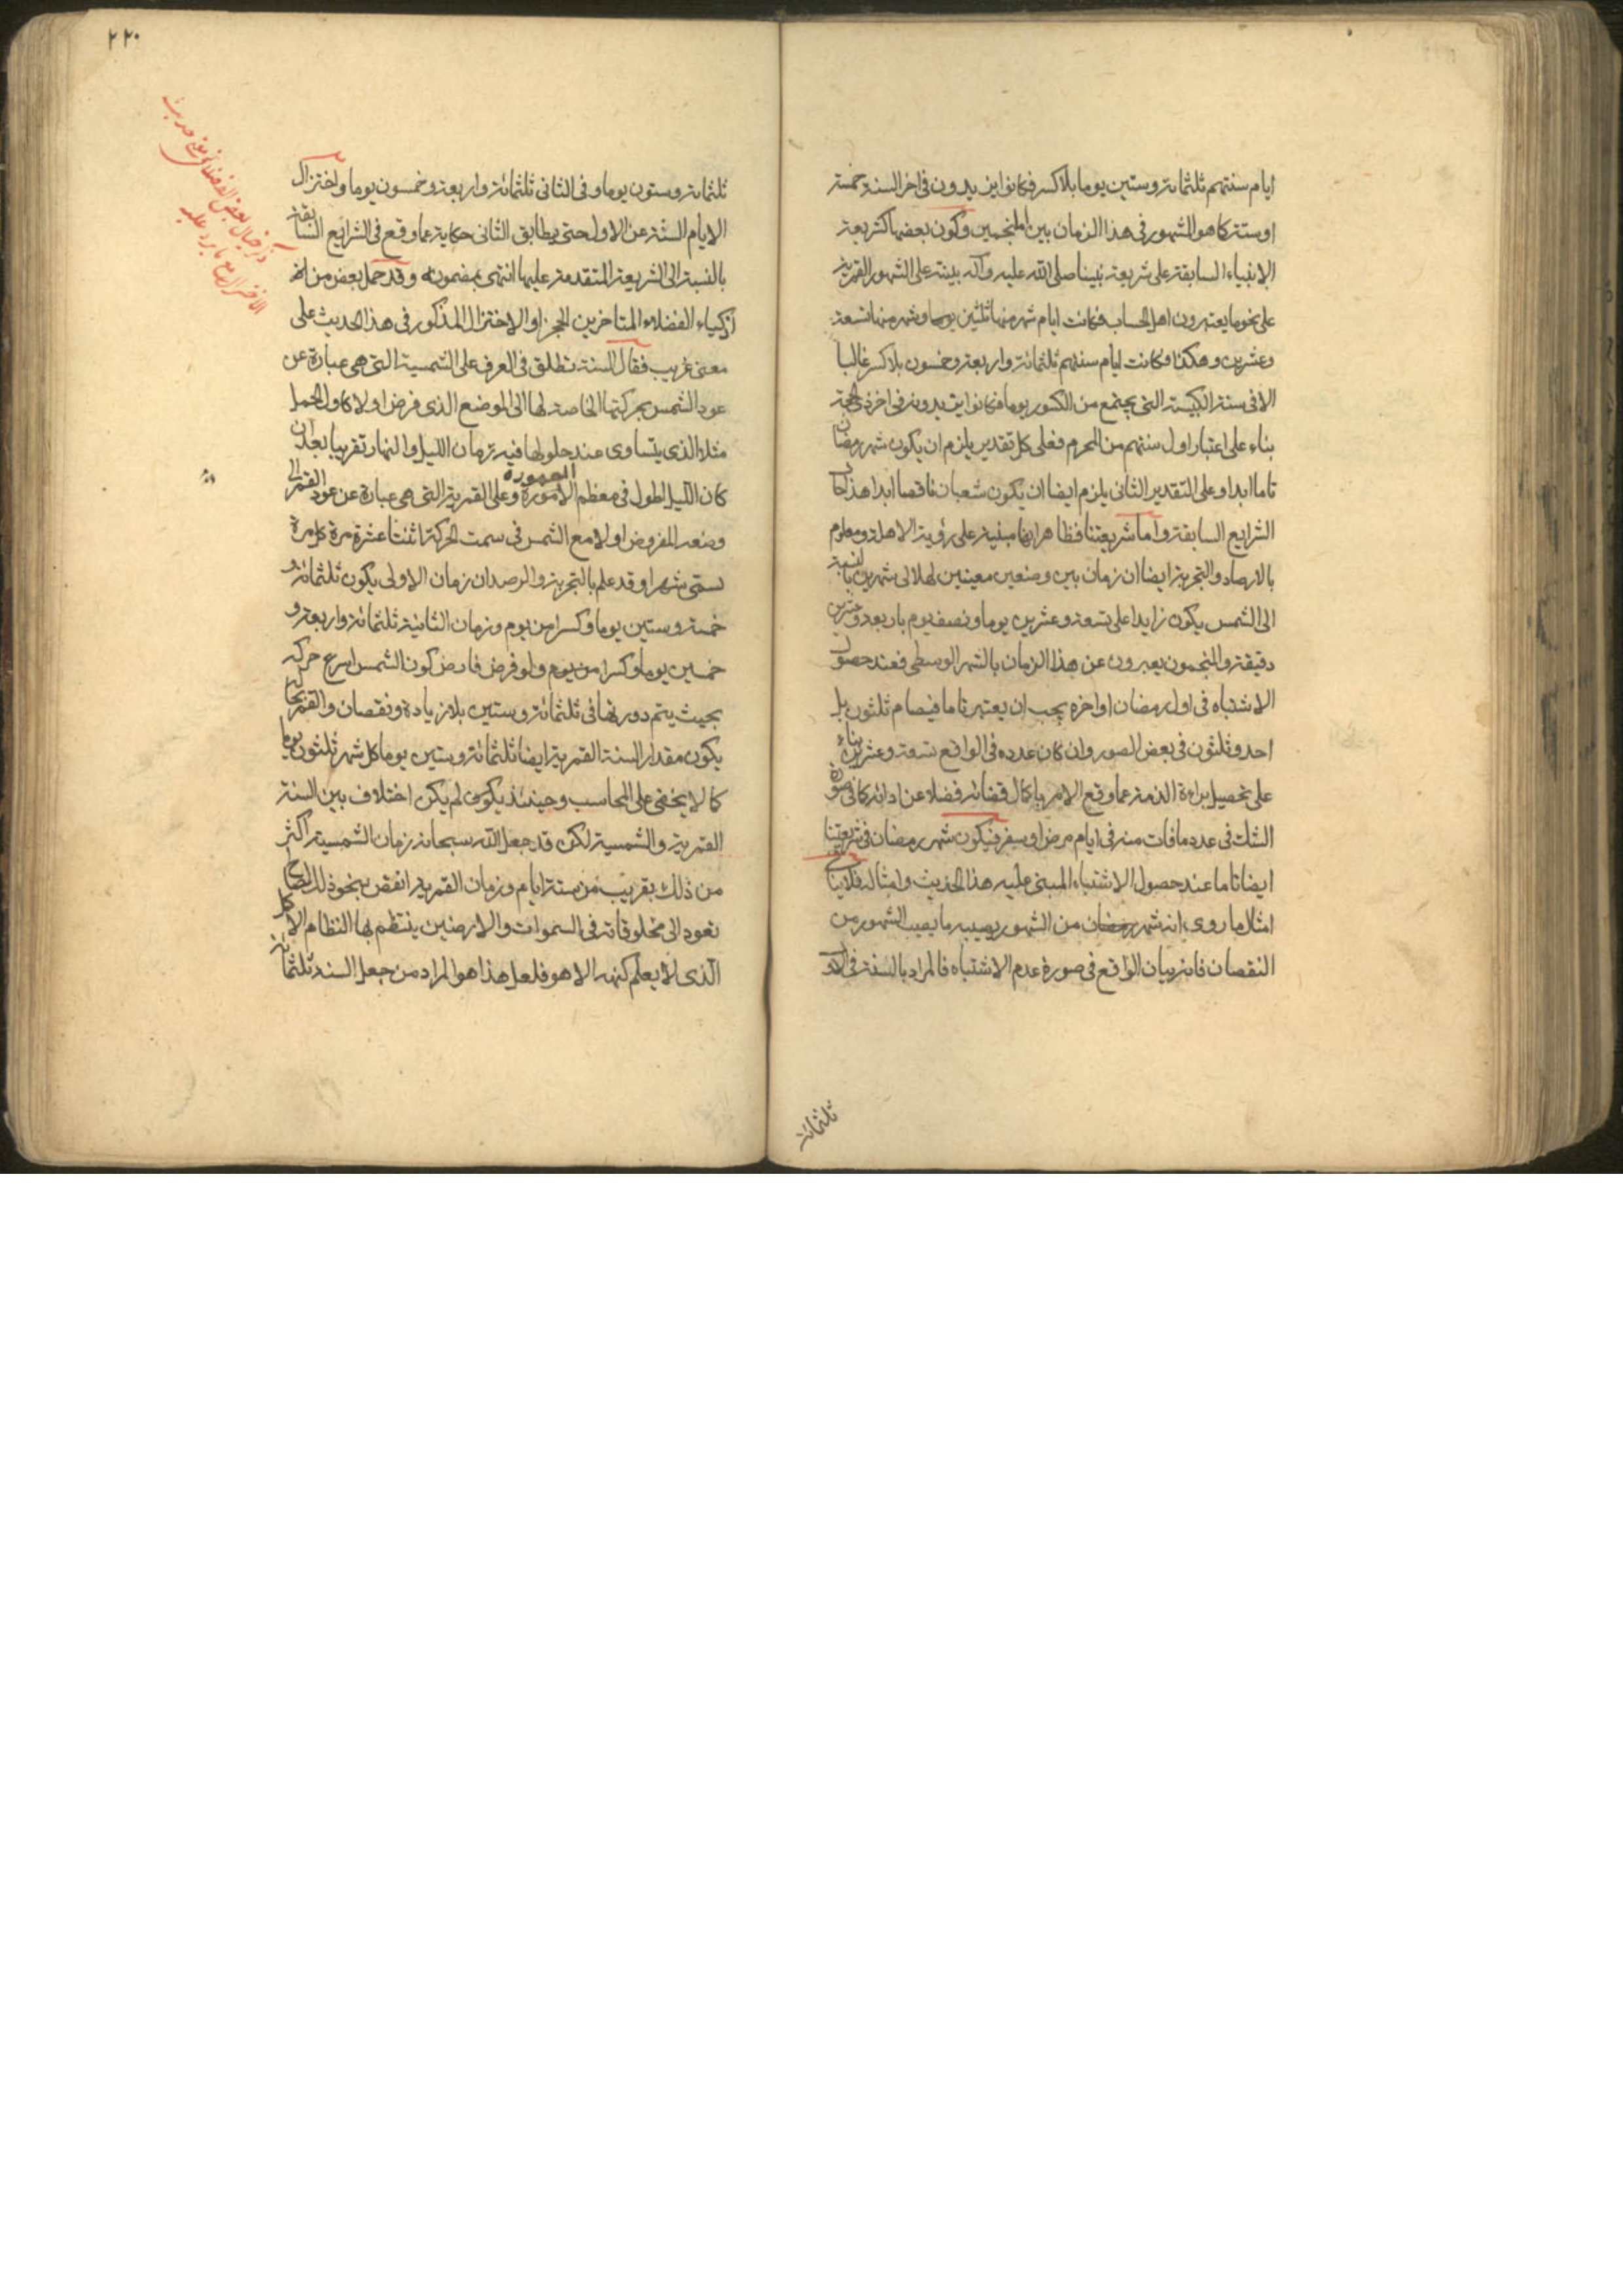 ايام سنتهم ثلثمائة وستين يوما بلا كسر فكانوا يزيدون فى اخر السنة خمسة
او ستة كما هو المشهور فى هذا الزمان بين المنجمين وكون بعضها كشريعة
الانبياء السابقة على شريعة نبينا صلى الله عليه وآله بينة على الشهور القمرية
على نحو ما يعتبرون اهل الحساب فكانت ايام شهر منها ثلثين يوما وشهر منها تسعة
وعشرين وهكذا فكانت ايام سنتهم ثلثمائة واربعة وخمسون بلا كسر غالبا
الا فى سنة الكبيسة التى يجتمع من الكسور يوما فكانوا يزيدونه فى اخر ذى الحجة
بناء على اعتبار اول سنتهم من المحرم فعلى كل تقدير يلزم ان يكون شهر رمضان
تاما ابدا وعلى التقدير الثانى يلزم ايضا ان يكون شعبان ناقصا ابدا هذا حال
الشرايع السابقة واما شريعتنا فظاهر انها مبنية على رؤية الاهلة ومعلوم
بالارصاد والتجربة ايضا ان زمان بين وضعين معينين لهلالى شهرين بالنسبة
الى الشمس يكون زايدا على تسعة وعشرين يوما ونصف يوم باربعة وعشرين
دقيقة والمنجمون يعبرون عن هذا الزمان بالشهر الوسطى فعند حصول
الاشتباه فى اول رمضان او اخره يجب ان يعتبر تاما فيصام ثلثون بل
احد وثلثون فى بعض الصور وان كان عدده فى الواقع تسعة وعشرين بناء
على تحصيل براءة الذمة عما وقع الامر باكمال قضائه فضلا عن ادائه كما فى صورة
الشك فى عدد ما فات منه فى ايام مرض او سفر فيكون شهر رمضان فى شريعتنا
ايضا تاما عند حصول الاشتباه المبنى عليه هذا الحديث وامثاله فلا ينافى
امثال ما روى انه شهر رمضان من الشهور يصيبه ما يصيب الشهور من
النقصان فانه بيان الواقع فى صورة عدم الاشتباه فالمراد بالسنة فى الاول
ثلثمائة
٢٢٠
ذكر خيال بعض الفضلاء فى معنى حديث
الاختزال مع ما يرد عليه
ثلثمائة وستون يوما وفى الثانى ثلثمائة واربعة وخمسون يوما واختزال
الايام الستة عن الاول حتى يطابق الثانى حكاية عما وقع فى الشرايع السابقة
بالنسبة الى الشريعة المتقدمة عليها انتهى بمضمونه وقد حمل بعض من
اذكياء الفضلاء المتاخرين الحجز او الاختزال المذكور فى هذا الحديث على
معنى غريب فقال السنة تطلق فى العرف على الشمسية التى هى عبارة عن
عود الشمس بحركتها الخاصة لها الى الموضع الذى فرض اولا كاول الحمل
مثلا الذى يتساوى عند حلولها فيه زمان الليل والنهار تقريبا بعد ان
كان الليل اطول فى معظم الامورة المعمورة وعلى القمرية التى هى عبارة عن عود القمر الى
وضعه المفروض اولا مع الشمس فى سمت الحركة اثنتا عشرة مرة كل مرة
تسمى شهرا وقد علم بالتجربة والرصد ان زمان الاولى يكون ثلثمائة و
خمسة وستين يوما وكسرا من يوم وزمان الثانية ثلثمائة واربعة و
خمسين يوما وكسرا من يوم ولو فرض فارض كون الشمس اسرع حركة
بحيث يتم دورتها فى ثلثمائة وستين بلا زيادة ونقصان والقمر بحاله
يكون مقدار السنة القمرية ايضا ثلثمائة وستين يوما كل شهر ثلثون يوما
كما لا يخفى على المحاسب وحينئذ يكون لم يكن اختلاف بين السنة
القمرية والشمسية لكن قد جعل الله سبحانه زمان الشمسية اكثر
من ذلك بقريب من ستة ايام وزمان القمرية انقص بنحو ذلك لمصالح
تعود الى مخلوقاته فى السموات والارضين ينتظم بها النظام الاكمل
الذى لا يعلم كنهه الا هو فلعل هذا هو المراد من جعل السنة ثلثمائة